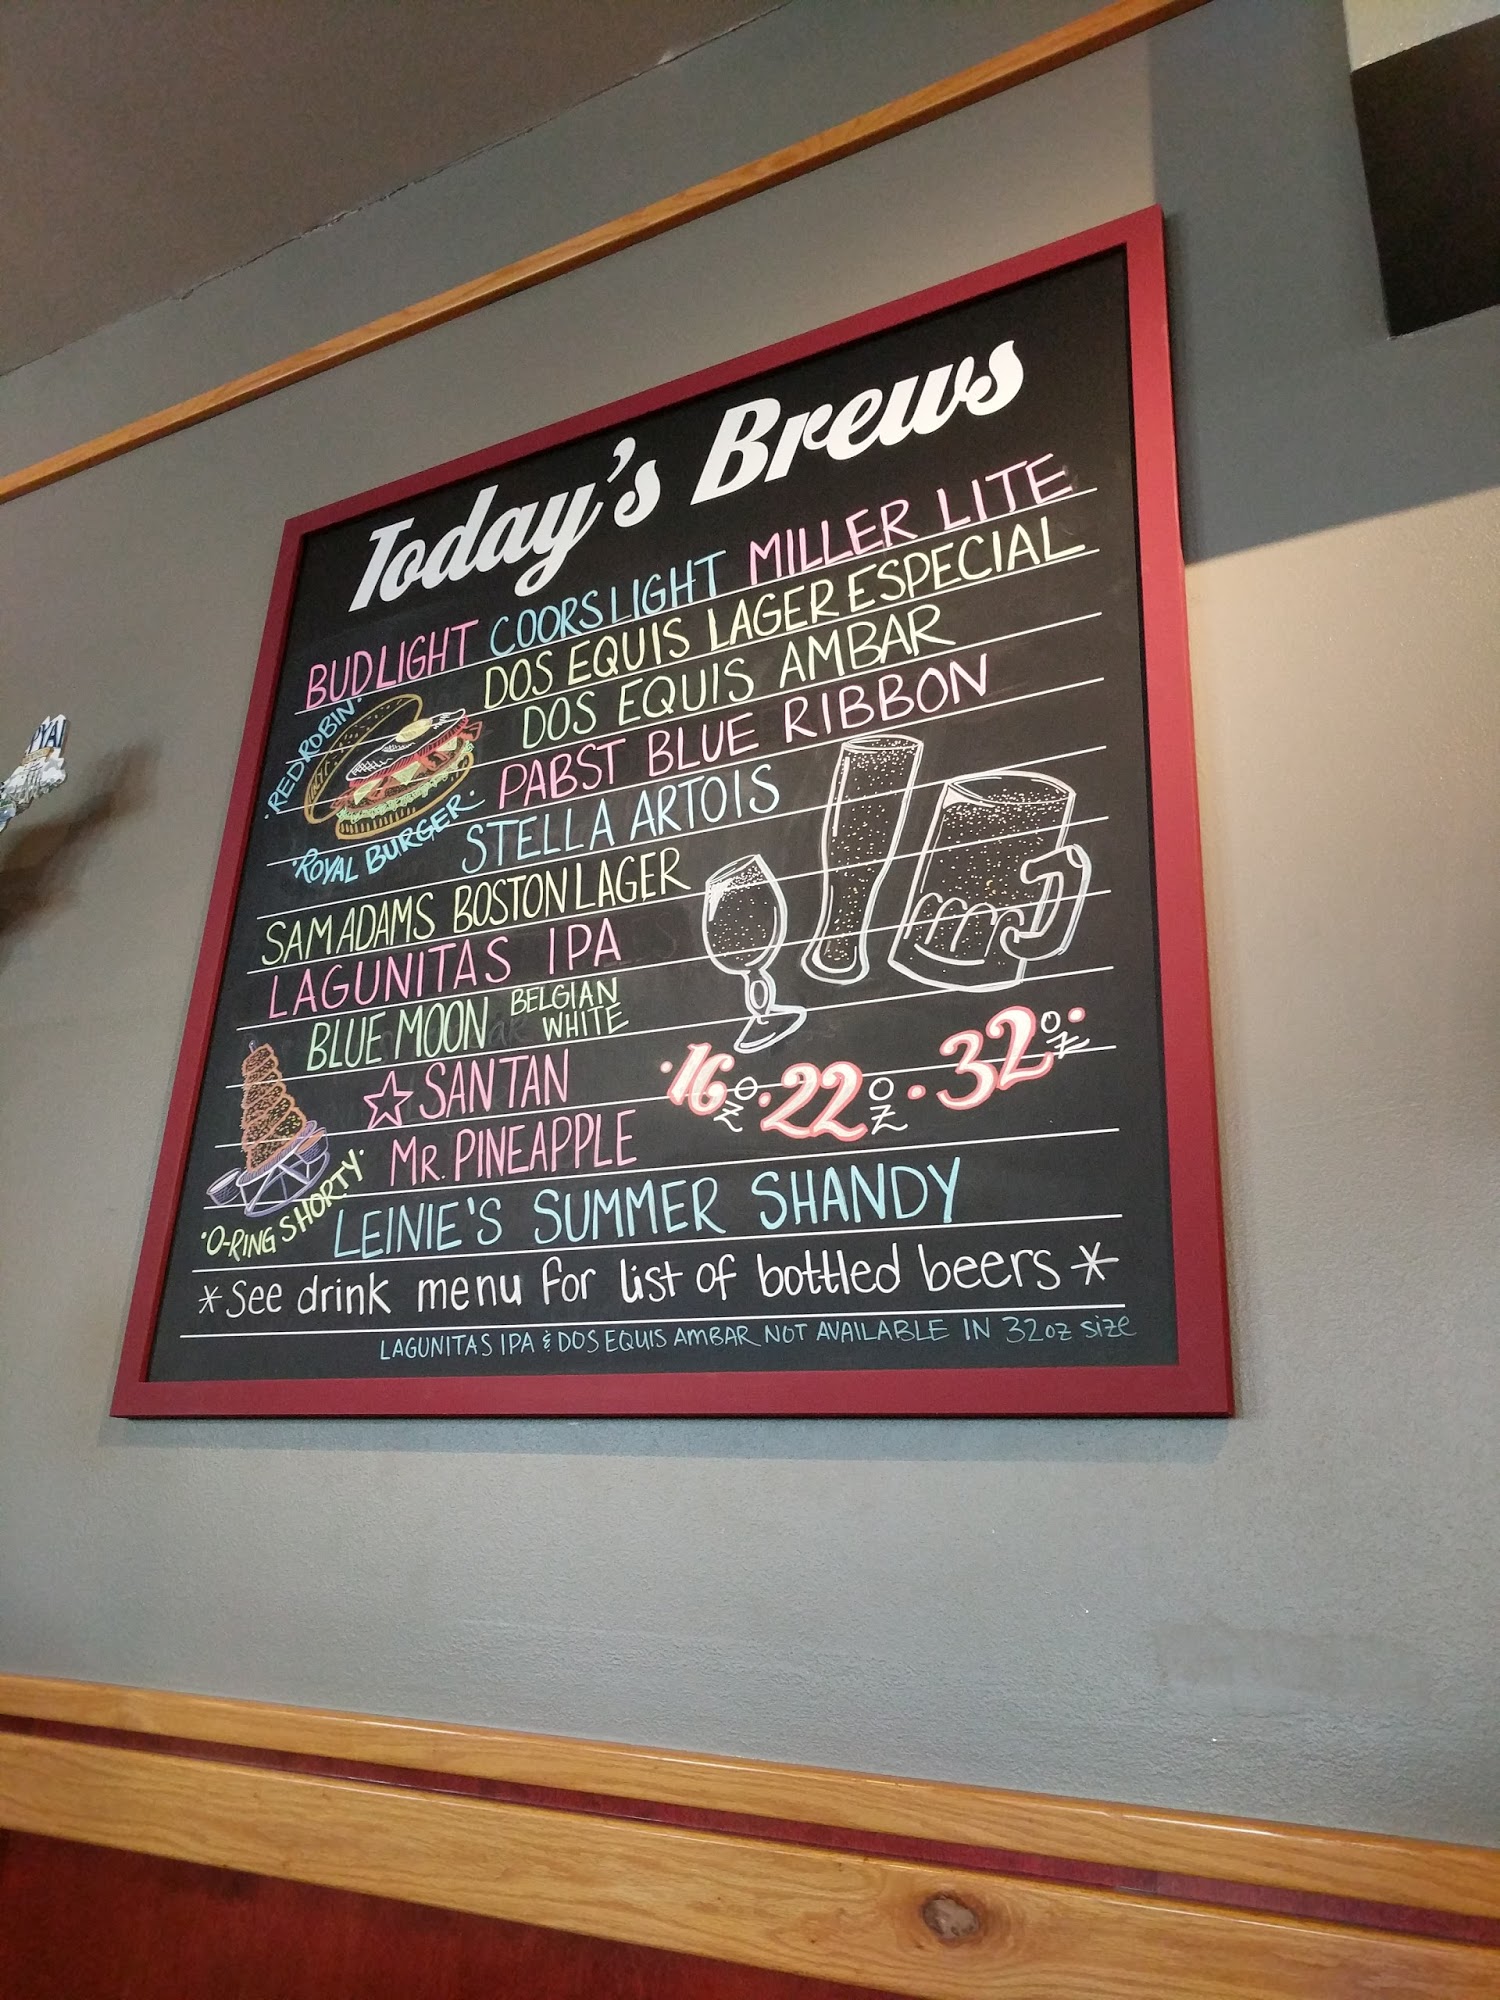 Today's Brews
BUD LIGHT COORS LIGHT MILLER LITE
DOS EQUIS LAGER ESPECIAL
DOS EQUIS AMBAR
·RED ROBIN·
·ROYAL BURGER·
PABST BLUE RIBBON
STELLA ARTOIS
SAM ADAMS BOSTON LAGER
LAGUNITAS IPA
BLUE MOON BELGIAN WHITE
☆ SANTAN
MR. PINEAPPLE
·16 OZ·22 OZ·32 OZ·
·O-RING SHORTY·
LEINIE'S SUMMER SHANDY
*See drink menu for list of bottled beers*
LAGUNITAS IPA & DOS EQUIS AMBAR NOT AVAILABLE IN 32oz size